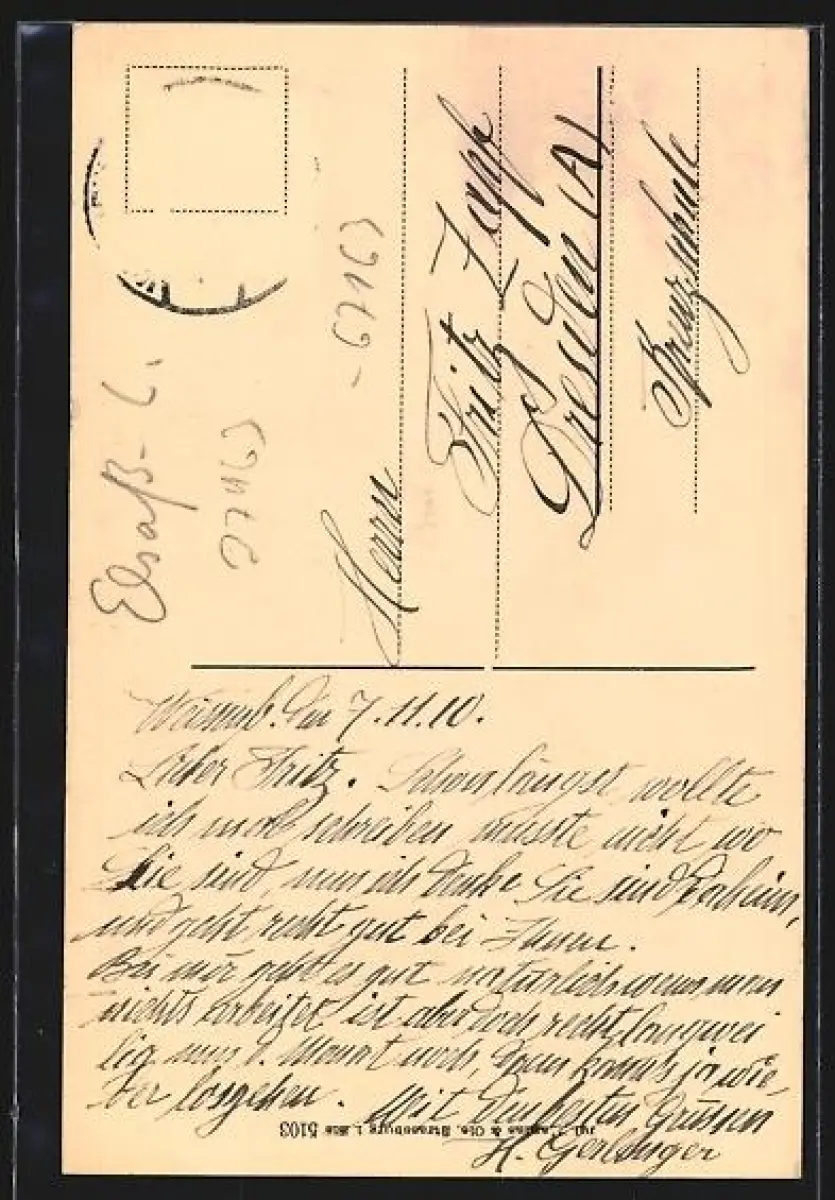 Elsaß-L.
27163
-67163
Herrn
Fritz Zapf
Dresden (A)
Weissenb. den 7.11.10.
Lieber Fritz. Schon längst wollte
ich mal schreiben, wusste nicht wo
Sie sind, nun ich denke Sie sind daheim,
und geht recht gut bei Ihnen.
Bei mir geht es gut natürlich wenn man
nichts arbeitet ist aber doch recht langwei
lig nun 1. Monat noch, dann kanns ja wie-
der losgehen. Mit den besten Grüssen
H. Gerlinger
& Cie, Strassburg i. Els 5103